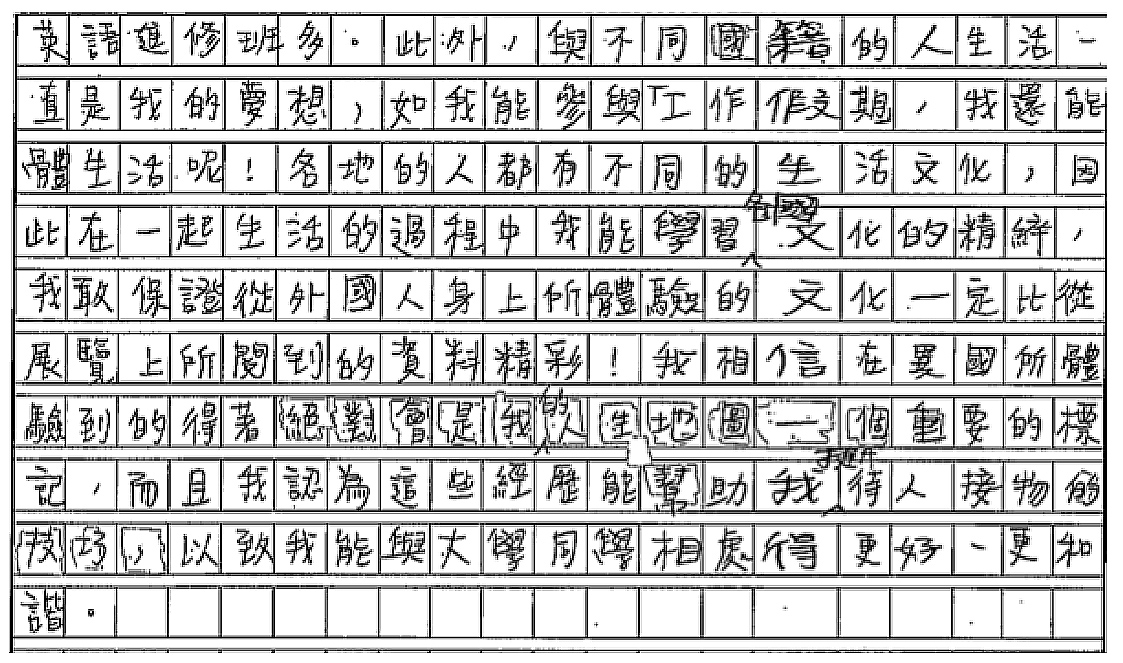 英語進修班多。此外,與不同國籍的人生活一
直是我的夢想,如我能參與「工作作文期,我還能
體生活呢!各地的人都有不同的生活文化,因
此在一起生活的過程中我能學習各國文化的精粹,
我敢保證從外國人身上所體驗的文化一定比從
展覽上所閱到的資料精彩!我相信在異國所體
驗到的得著絕對會是我的人生地圖一個重要的標
記,而且我認為這些經歷能幫助我待人接物的
技巧,以致我能與大學同學相處得更好、更和
諧。